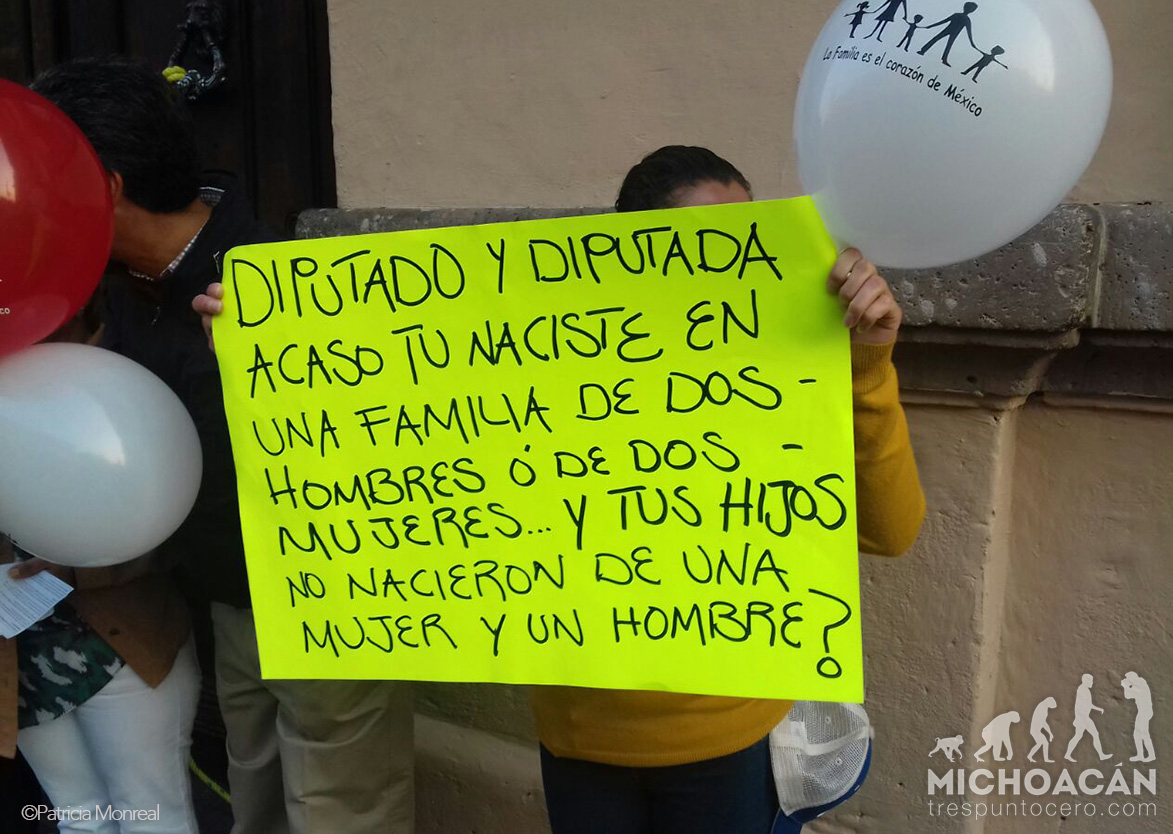 La Familia es el corazón de México
DIPUTADO Y DIPUTADA
ACASO TU NACISTE EN
UNA FAMILIA DE DOS -
HOMBRES Ó DE DOS -
MUJERES... Y TUS HIJOS
NO NACIERON DE UNA
MUJER Y UN HOMBRE?
©Patricia Monreal
MICHOACÁN
trespuntocero.com